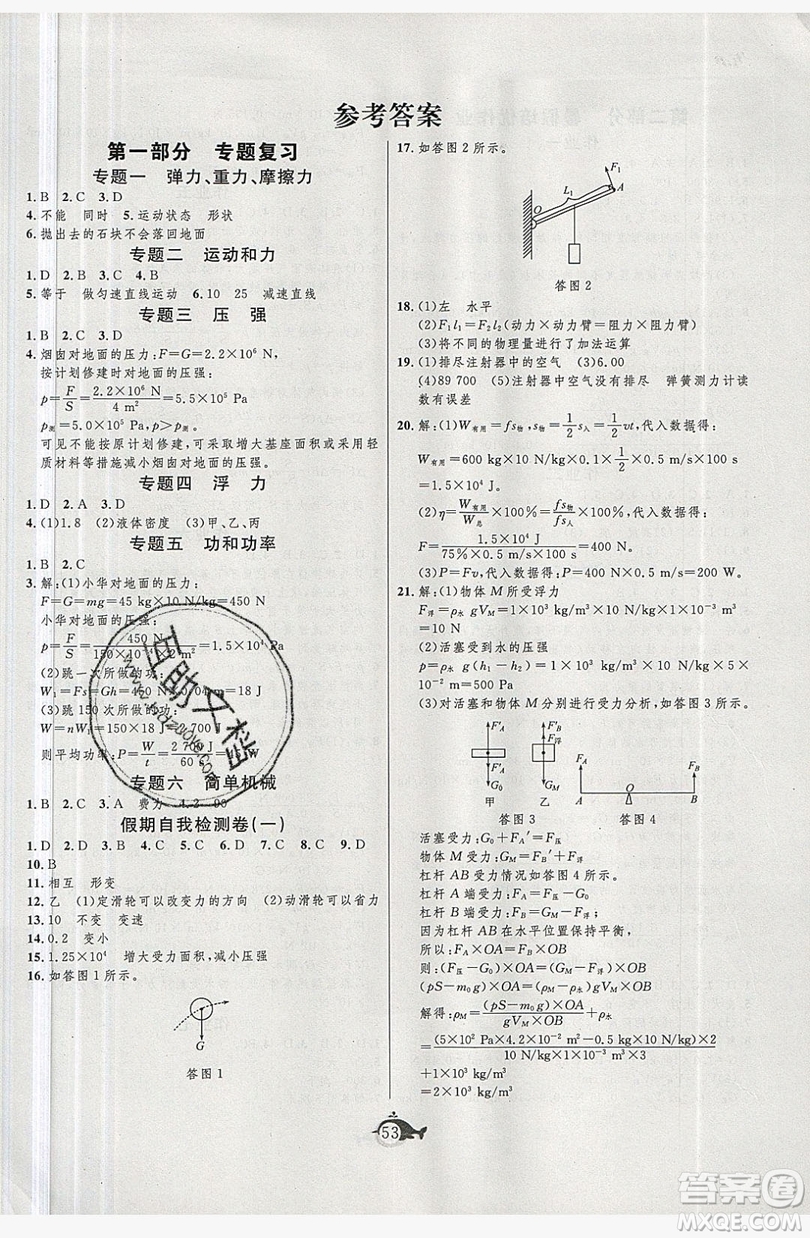 参考答案
第一部分　专题复习
专题一　弹力、重力、摩擦力
1. B　2. C　3. D
4. 不能　同时　5. 运动状态　形状
6. 抛出去的石块不会落回地面
专题二　运动和力
1. D　2. B　3. C　4. B
5. 等于　做匀速直线运动　6. 10　25　减速直线
专题三　压　强
1. B　2. C　3. D
4. 烟囱对地面的压力：F=G=2.2×10⁶ N
按计划修建时对地面的压强：
p=F/S=2.2×10⁶ N/4 m²=5.5×10⁵ Pa
p测=5.0×10⁵ Pa, p>p测。
可见不能按原计划修建，可采取增大基座面积或采用轻
质材料等措施减小烟囱对地面的压强。
专题四　浮　力
1. D　2. A　3. D
4. (1)1.8　(2)液体密度　(3)甲、乙、丙
专题五　功和功率
1. B　2. C
3. 解：(1)小华对地面的压力：
F=G=mg=45 kg×10 N/kg=450 N
小华对地面的压强：
p=F/S=450 N/150×10⁻⁴×2 m²=1.5×10⁴ Pa
(2)跳一次所做的功：
W₁=Fs=Gh=450 N×0.04 m=18 J
(3)跳 150 次所做的功：
W=nW₁=150×18 J=2 700 J
则平均功率：P=W/t=2 700 J/60 s=45 W
专题六　简单机械
1. B　2. C　3. A　4. 费力　1.2　90
假期自我检测卷(一)
1. D　2. B　3. D　4. B　5. C　6. D　7. C　8. C　9. D
10. B
11. 相互　形变
12. 乙　(1)定滑轮可以改变力的方向　(2)动滑轮可以省力
13. 10　不变　变速
14. 0.2　变小
15. 1.25×10⁴　增大受力面积，减小压强
16. 如答图 1 所示。
G
答图 1
17. 如答图 2 所示。
F₁
L₁
A
O
答图 2
18. (1)左　水平
(2)F₁l₁=F₂l₂(动力×动力臂=阻力×阻力臂)
(3)将不同的物理量进行了加法运算
19. (1)排尽注射器中的空气　(3)6.00
(4)89 700　(5)注射器中空气没有排尽　弹簧测力计读
数有误差
20. 解：(1)W有用=fs物, s物=1/2 s人=1/2 vt, 代入数据得：
W有用=600 kg×10 N/kg×0.1×1/2×0.5 m/s×100 s
=1.5×10⁴ J。
(2)η=W有用/W总×100%=fs物/Fs人×100%, 代入数据得：
F=1.5×10⁴ J/75%×0.5 m/s×100 s=400 N。
(3)P=Fv, 代入数据得：P=400 N×0.5 m/s=200 W。
21. 解：(1)物体 M 所受浮力
F浮=ρ水 gVM=1×10³ kg/m³×10 N/kg×1×10⁻³ m³=10 N
(2)活塞受到水的压强
p=ρ水 g(h₁-h₂)=1×10³ kg/m³×10 N/kg×0.5 m=5×
10³ Pa
(3)对活塞和物体 M 分别进行受力分析，如答图 3 所示。
F′A
F压
G₀
甲
F′B
F浮
GM
乙
答图 3
FA
A
O
FB
B
答图 4
活塞受力：G₀+FA′=F压
物体 M 受力：GM=FB′+F浮
杠杆 AB 受力情况如答图 4 所示。
杠杆 A 端受力：FA=FA′=F压-G₀
杠杆 B 端受力：FB=FB′=GM-F浮
因为杠杆 AB 在水平位置保持平衡，
所以：FA×OA=FB×OB
则：(F压-G₀)×OA=(GM-F浮)×OB
(pS-m₀g)×OA=(ρM-ρ水)gVM×OB
解得：ρM=(pS-m₀g)×OA/gVM×OB+ρ水
=(5×10³ Pa×4.2×10⁻² m²-0.5 kg×10 N/kg)×2/10 N/kg×1×10⁻³ m³×1
+1×10³ kg/m³
=2×10³ kg/m³
53
互助文档
答案圈
MXQE.COM